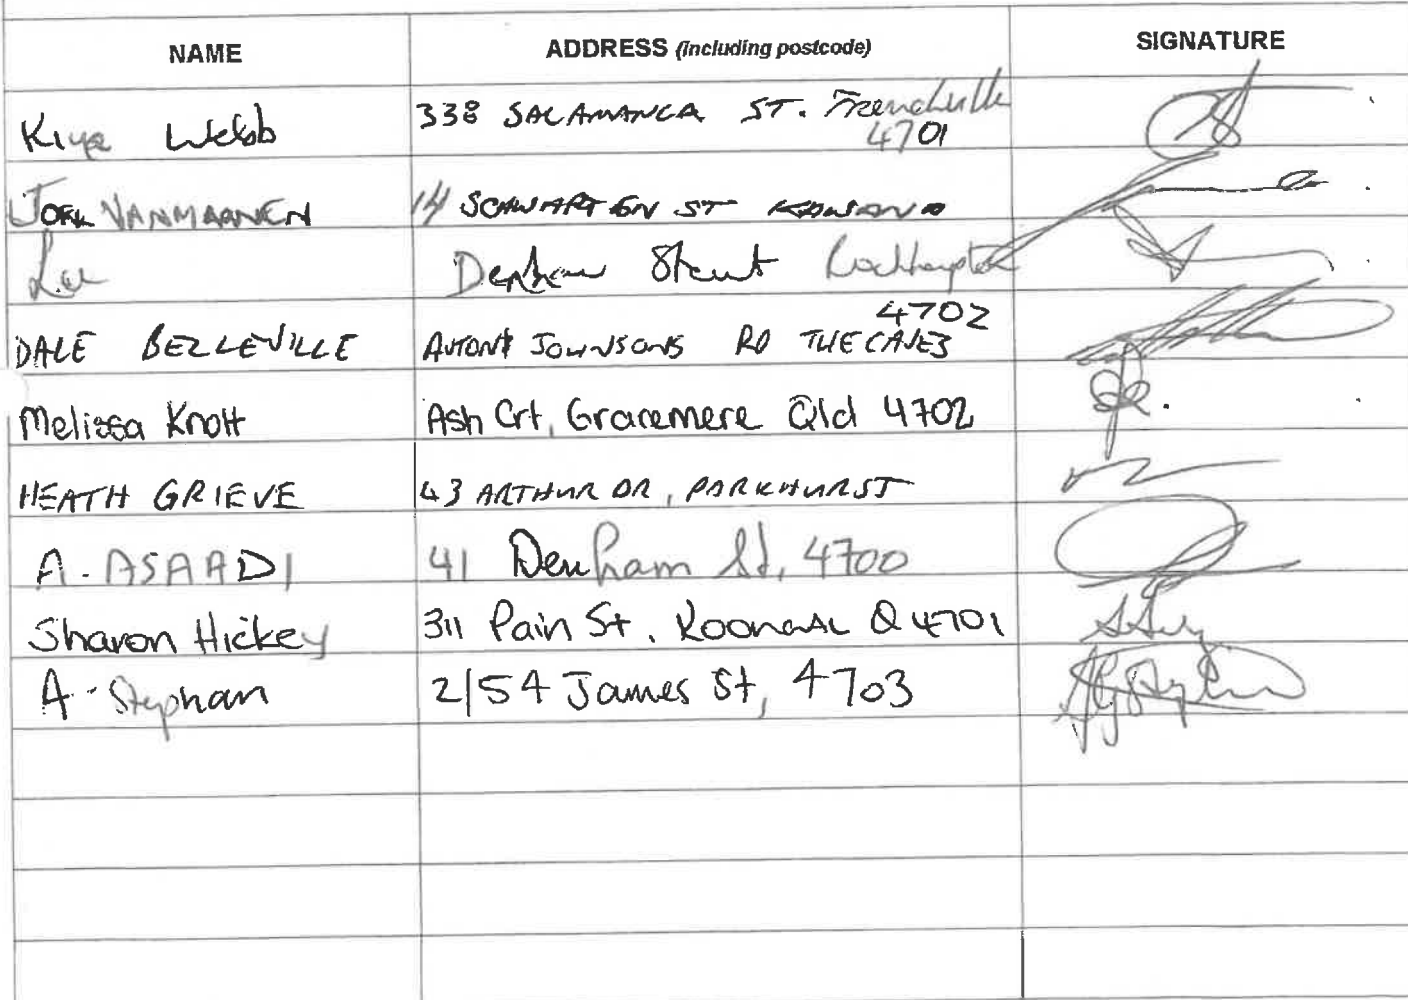 NAME ADDRESS (including postcode) SIGNATURE
Webb 338 SALAMANCA ST. Frenchville
4701
JOEL VANMAANEN 14 ST KAWANA
Denham Street Rockhampton
4702
DALE BELLEVILLE JOHNSONS RD THE CAVES
Melissa Knott Ash Crt, Gracemere Qld 4702
HEATH GRIEVE 43 ARTHUR DR, PARKHURST
A. ASAADI 41 Denham St, 4700
Sharon Hickey 311 Pain St. Koongal Q 4701
A. Stephan 2/54 James St, 4703